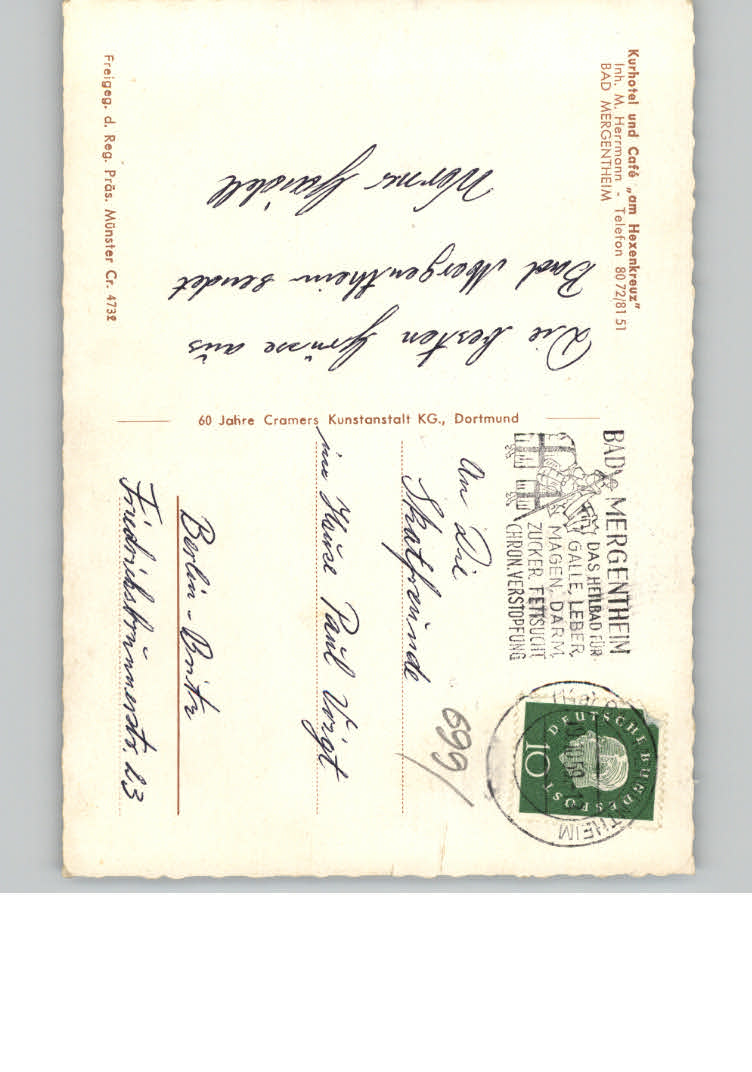 Kurhotel und Café „am Hexenkreuz"
Inh. M. Herrmann - Telefon 80 72/81 51
BAD MERGENTHEIM
Die besten Grüsse aus
Bad Mergentheim sendet
Werner
Freigeg. d. Reg. Präs. Münster Cr. 4732
60 Jahre Cramers Kunstanstalt KG., Dortmund
BAD MERGENTHEIM
DAS HEILBAD FÜR
GALLE, LEBER,
MAGEN, DARM,
ZUCKER, FETTSUCHT,
CHRON. VERSTOPFUNG
DEUTSCHE BUNDESPOST
10
An Die
Skatfreunde
im Hause Paul Voigt
Berlin-Britz
Friedrichsbrunnerstr. 23
699/